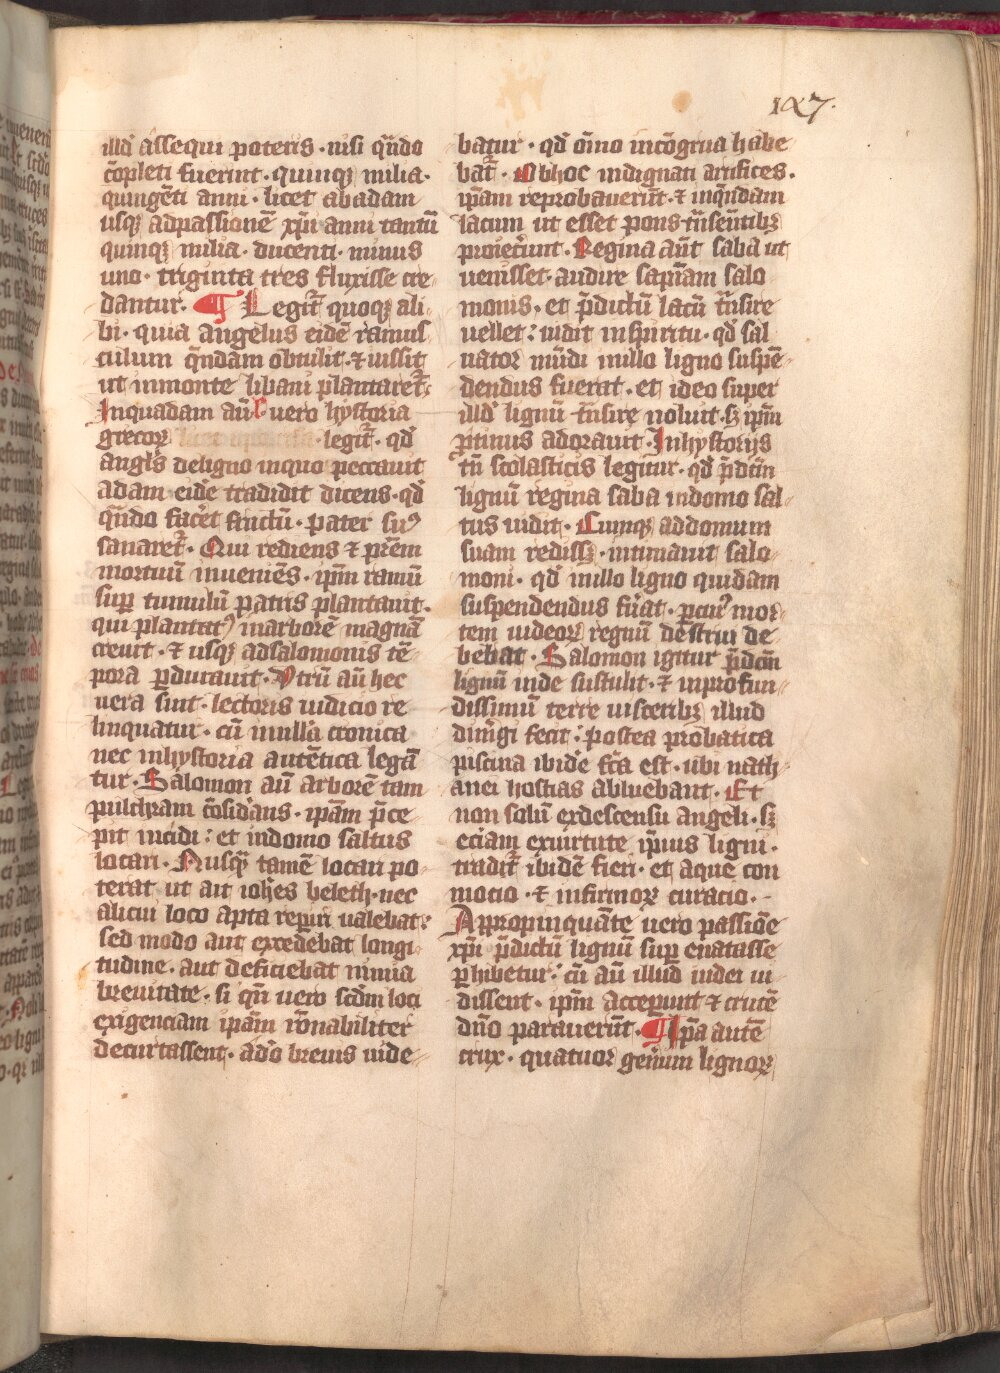 147.
illd̕ assequi poteris · nisi qn̄do
c̄pleti fuerint · quinqꝫ milia ·
quingēti anni · licet abadam
usqꝫ adpassionē xp̄i anni tantū
quinqꝫ milia · ducenti · minus
uno · triginta tres fluxisse cre
dantur · ¶ Legit᷑ quoqꝫ ali
bi · quia angelus eidē ramus
culum qn̄dam obtulit · ⁊ iussit
ut inmonte libani plantaret᷑
Inquadam aū uero hystoria
grecoꝝ · legit᷑ · qd̕
angl̕s deligno inquo peccauit
adam eid̕e tradidit dicens · qd̕
qn̄do fac̕et fructū · pater suꝰ
sanaret᷑ · Qui rediens ⁊ pr̄em
mortuū inueniēs · ip̄m ramū
suꝑ tumulū patris plantauit ·
qui plantatꝰ inarborē magnā
creuit · ⁊ usqꝫ adsalomonis tē
pora ꝑdurauit · Vtrū aū hec
uera sint · lectoris iudicio re
linquatur · cū innulla cronica
nec inhystoria autētica legā
tur · Salomon aū arborē tam
pulchram c̄sid̕ans · ip̄am p̄ce
pit incidi : et indomo saltus
locari · Nusqꝫ tamē locari po
terat ut ait ioh̄es beleth · nec
alicui loco apta reꝑiri ualebat :
sed modo aut excedebat longi
tudine · aut deficiebat nimia
breuitate · si qn̄ uero scd̄m loci
exigenciam ip̄am rōnabiliter
decurtassent · ad̕o breuis uide
batur · qd̕ om̄o incōgrua habe
bat᷑ · Obhoc indignati artifices ·
ip̄am reprobauerūt · ⁊ inqn̄dam
lacum ut esset pons tn̄seūtibꝫ
proiec̕unt · Regina aūt saba ut
uenisset · audire sap̄iam salo
monis · et p̄dictū lacū tn̄sire
uellet : uidit inspiritu · qd̕ sal
uator mūdi inillo ligno suspē
dendus fuerat · et ideo super
illd̕ lignū tn̄sire noluit · sꝫ ip̄m
ꝓtinus adorauit · Inhystorijs
tn̄ scolasticis legitur · qd̕ p̄dc̄m
lignū regina saba indomo sal
tus uidit · Cumqꝫ addomum
suam redissꝫ · intimauit salo
moni · qd̕ inillo ligno quidam
suspendendus fu̕at · ꝑcuiꝰ mor
tem iudeoꝝ regnū destrui de
bebat · Salomon igitur p̄dc̄m
lignū inde sustulit · ⁊ inprofun
dissimū terre uisceribꝫ illud
dim̕gi fecit : postea probatica
piscina ibid̕e fc̄a est · ubi nath
anei hostias abluebant · Et
non solū exdescensu angeli · sꝫ
eciam exuirtute ip̄ius ligni ·
tradit᷑ ibidē fieri · et aque com
mocio · ⁊ infirmoꝝ curacio ·
Appropinquāte uero passiōe
xp̄i p̄dictū lignū suꝑ enatasse
ꝑhibetur : cū aū illud iudei ui
dissent · ip̄m acceꝑunt ⁊ crucē
dn̄o parauerūt · ¶ Ip̄a autē
crux · quatuor gen̄um lignoꝝ